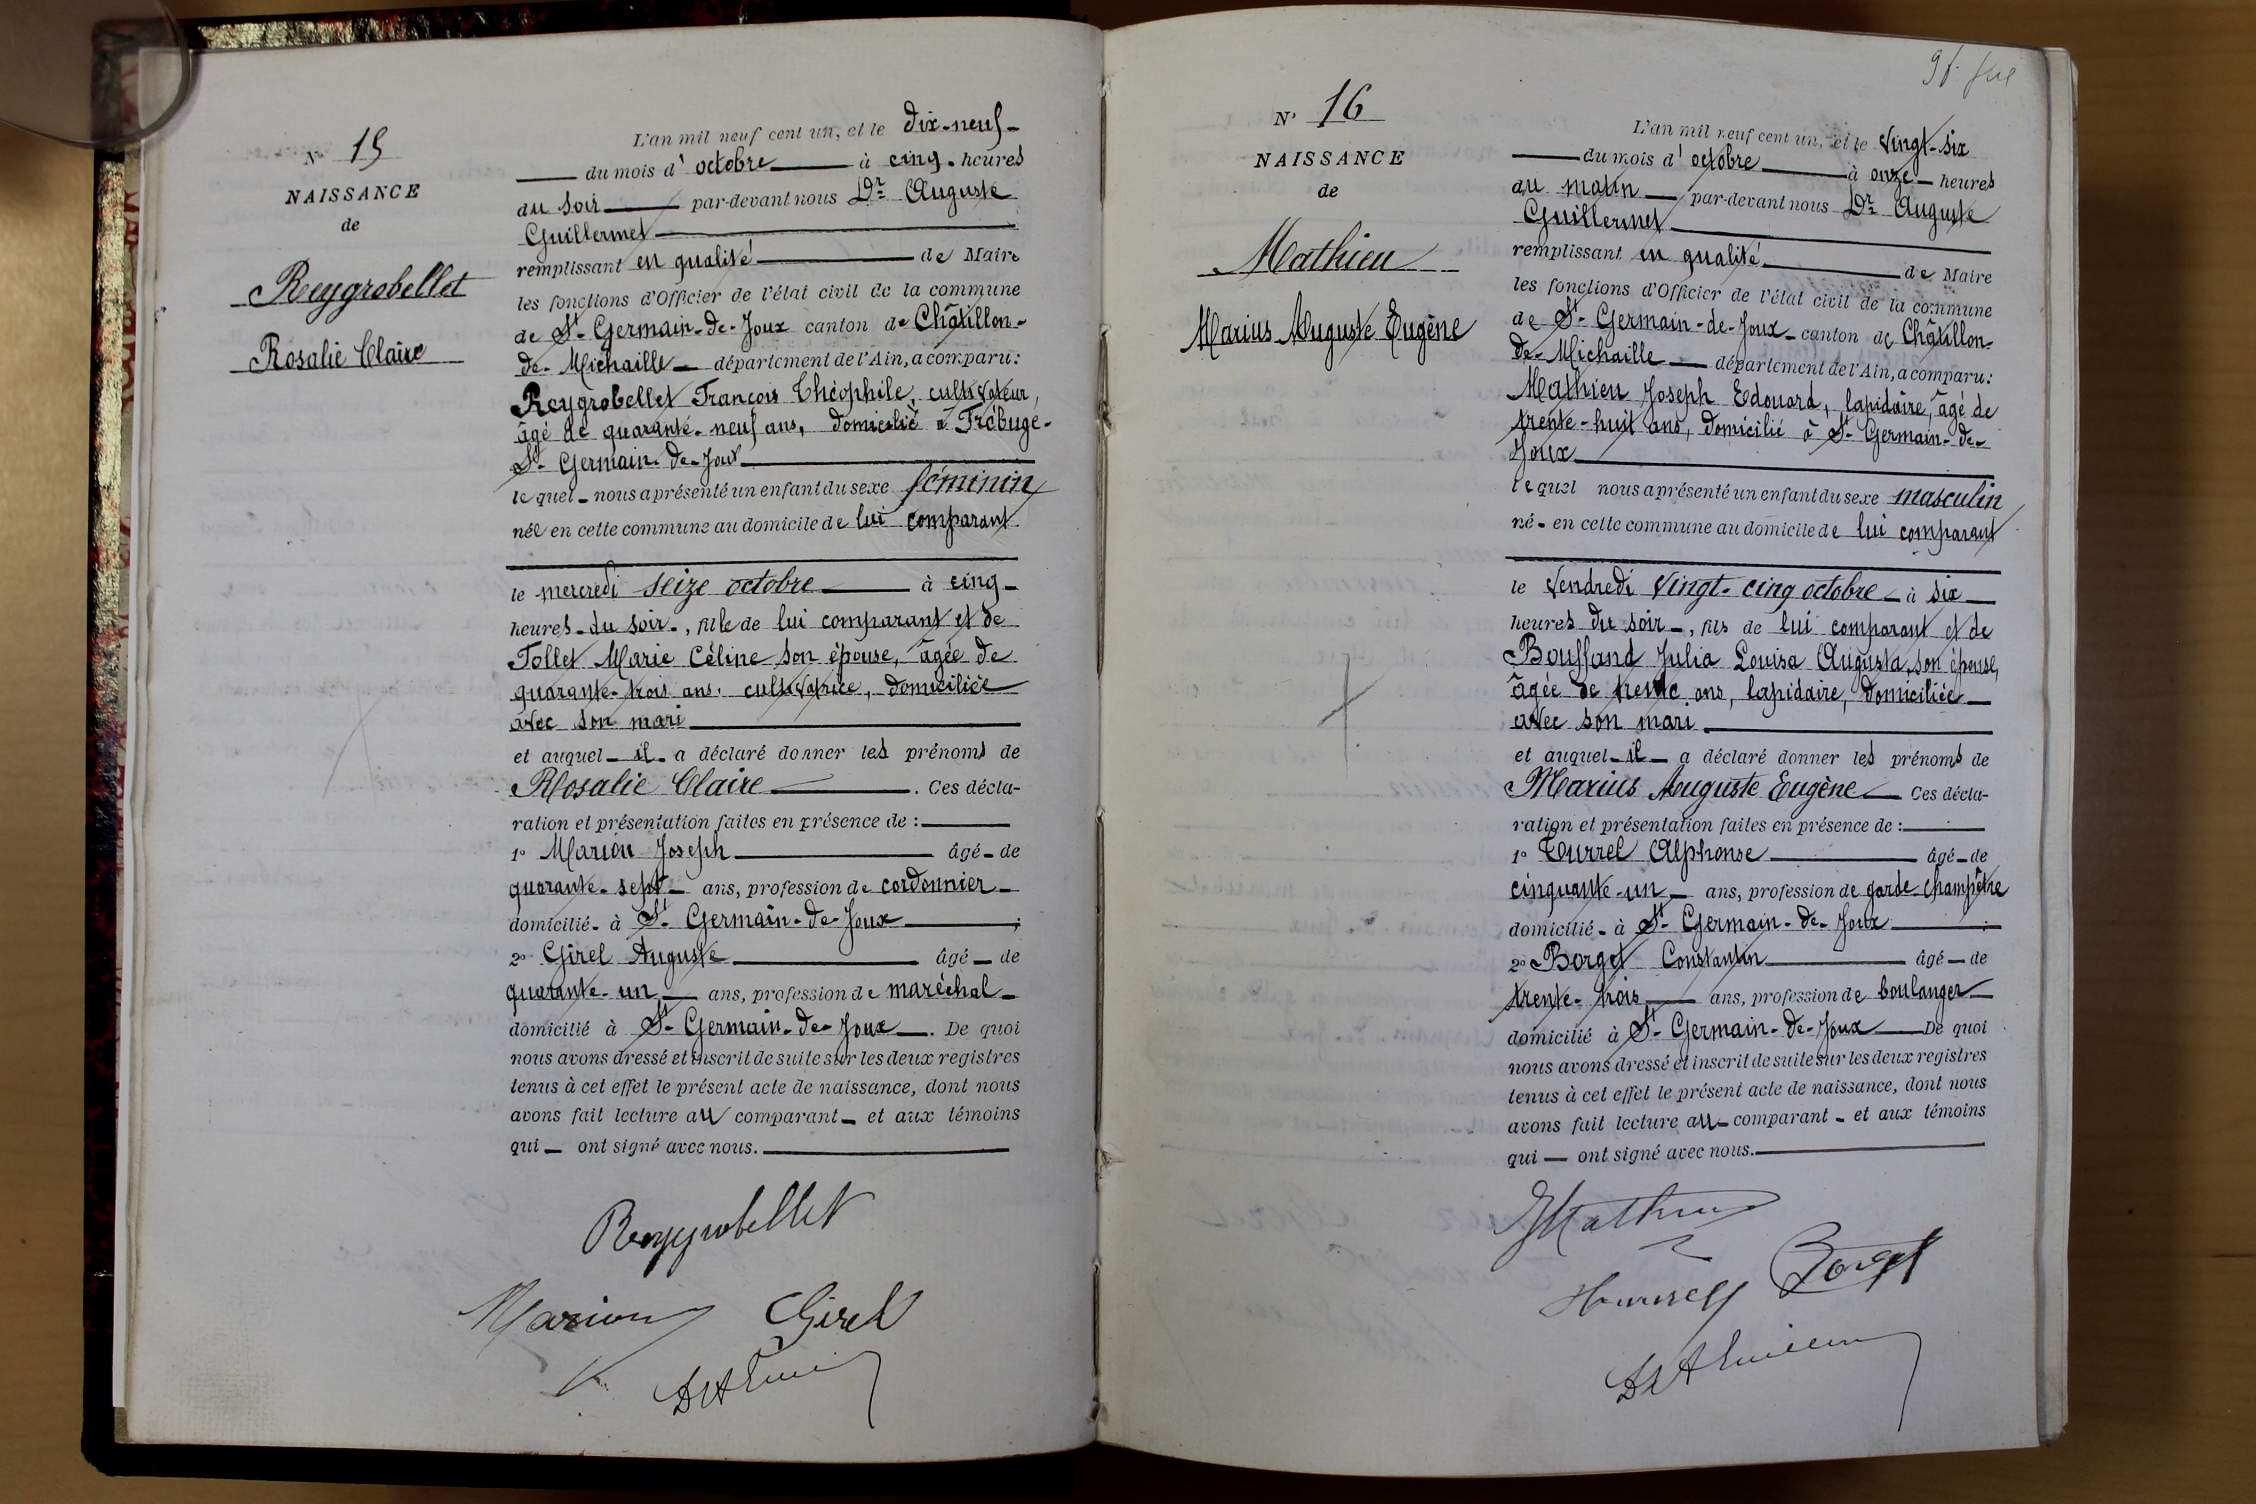 N° 15
NAISSANCE
de
Reygrobellet
Rosalie Claire
L'an mil neuf cent un, et le dix-neuf
du mois d'octobre à cinq heures
du soir par-devant nous Dr Auguste
Guillermet
remplissant en qualité de Maire
les fonctions d'Officier de l'état civil de la commune
de St-Germain-de-Joux canton de Châtillon-
de-Michaille département de l'Ain, a comparu:
Reygrobellet François Théophile, cultivateur,
âgé de quarante-neuf ans, domicilié à Trébugé-
St-Germain-de-Joux
lequel nous a présenté un enfant du sexe féminin
née en cette commune au domicile de lui comparant
le mercredi seize octobre à cinq
heures du soir, fille de lui comparant et de
Tollet Marie Céline son épouse, âgée de
quarante-trois ans, cultivatrice, domiciliée
avec son mari
et auquel il a déclaré donner les prénoms de
Rosalie Claire. Ces décla-
ration et présentation faites en présence de :
1° Marion Joseph âgé de
quarante-sept ans, profession de cordonnier
domicilié à St-Germain-de-Joux ;
2° Girel Auguste âgé de
quarante-un ans, profession de maréchal
domicilié à St-Germain-de-Joux. De quoi
nous avons dressé et inscrit de suite sur les deux registres
tenus à cet effet le présent acte de naissance, dont nous
avons fait lecture au comparant et aux témoins
qui ont signé avec nous.
Reygrobellet
Marion Girel
N° 16
NAISSANCE
de
Mathieu
Marius Auguste Eugène
L'an mil neuf cent un, et le vingt-six
du mois d'octobre à onze heures
du matin par-devant nous Dr Auguste
Guillermet
remplissant en qualité de Maire
les fonctions d'Officier de l'état civil de la commune
de St-Germain-de-Joux canton de Châtillon-
de-Michaille département de l'Ain, a comparu:
Mathieu Joseph Edouard, lapidaire, âgé de
trente-huit ans, domicilié à St-Germain-de-
Joux
lequel nous a présenté un enfant du sexe masculin
né en cette commune au domicile de lui comparant
le vendredi vingt-cinq octobre à six
heures du soir, fils de lui comparant et de
Bouffand Julia Louisa Augusta, son épouse,
âgée de trente ans, lapidaire, domiciliée
avec son mari
et auquel il a déclaré donner les prénoms de
Marius Auguste Eugène Ces décla-
ration et présentation faites en présence de :
1° Tourrel Alphonse âgé de
cinquante-un ans, profession de garde-champêtre
domicilié à St-Germain-de-Joux ;
2° Borget Constantin âgé de
trente-trois ans, profession de boulanger
domicilié à St-Germain-de-Joux De quoi
nous avons dressé et inscrit de suite sur les deux registres
tenus à cet effet le présent acte de naissance, dont nous
avons fait lecture au comparant et aux témoins
qui ont signé avec nous.
Mathieu
Borget